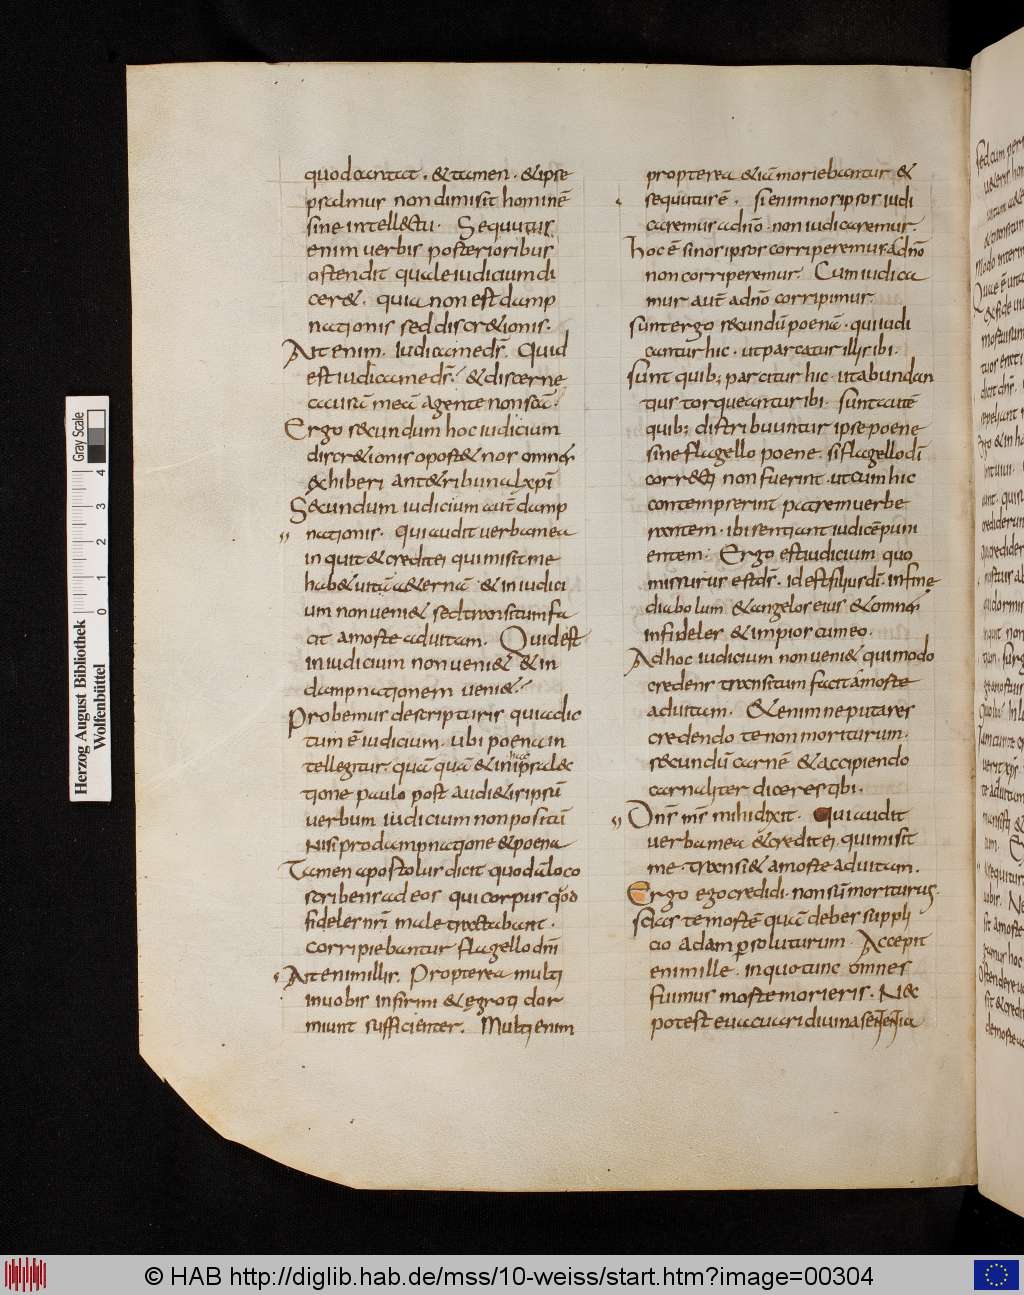 quod cantat . & tamen . & ipse
psalmus non dimisit hominē
sine intellectu . Sequitur
enim uerbis posterioribus
ostendit quale iudicium di
ceret . quia non est damp
nationis sed discretionis .
Ait enim . Iudica me ds̄ . Quid
est iudica me ds̄ ? & discerne
causā meā a gente non scā .
Ergo secundum hoc iudicium
discretionis oportet nos omnes
exhiberi ante tribunal xpī
Secundum iudicium aut̄ damp
nationis . Qui audit uerba mea
inquit & credit ei qui misit me
habet uitā aeternā & in iudici
um non ueniet sed transitum fa
cit a morte ad uitam . Quid est
in iudicium non ueniet & in
dampnationem ueniet ?
Probemus de scripturis quia dic
tum ē iudicium . ubi poena in
tellegitur . quā quā & in ipsa lec
tione paulo post audietis ipsū
uerbum iudicium non positū
nisi pro dampnatione & poena
Tamen apostolus dicit quodā loco
scribens ad eos qui corpus qd̄
fideles nr̄i male tractabant .
corripiebantur flagello dn̄i
Ait enim illis . Propterea multi
in uobis infirmi & egroti dor
miunt sufficienter . Multi enim
propterea etiā moriebantur &
sequitur ē . si enim nos ipsos iudi
caremus a dn̄o . non iudicaremur .
hoc ē si nos ipsos corriperemus a dn̄o
non corriperemur Cum iudica
mur aut̄ a dn̄o corripimur .
sunt ergo secundū poenā . qui iudi
cantur hic . ut parcatur illis ibi .
sunt quib; parcitur hic . ut abundan
tius torqueantur ibi . sunt autē
quib; distribuuntur ipse poene
sine flagello poene . si flagello dī
correcti non fuerint . ut cum hic
contempserint patrem uerbe
rantem . ibi sentiant iudicē puni
entem . Ergo est iudicium quo
missurus est ds̄ . id est filius dī . in fine
diabolum & angelos eius & omnes
infideles & impios cum eo .
Ad hoc iudicium non ueniet qui modo
credens transitum facit a morte
ad uitam . Et enim ne putares
credendo te non moriturum .
secundū carnē & accipiendo
carnaliter diceres tibi .
Dn̄s ms̄ mihi dixit . Qui audit
uerba mea & credit ei qui misit
me . transiet a morte ad uitam .
Ergo ego credidi . non sū moriturus .
scias te mortē quā debes suppli
cio adam p̄soluturum . Accepit
enim ille . in quo tunc omnes
fuimus morte morieris . Nec
potest euacuari diuina sententia
Herzog August Bibliothek
Wolfenbüttel
0 1 2 3 4
Gray Scale
© HAB http://diglib.hab.de/mss/10-weiss/start.htm?image=00304